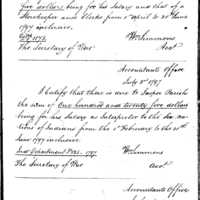 five dollars being for his Salary and that of a
Storekeeper and Clerks from 1st April to 30 June
1797 inclusive.
Wm Simmons
The Secretary of War
Acct
Accountants Office
July 3d 1797
I certify that there is due to Jasper Parish
the sum of One hundred and twenty five dollars
being for his Salary as Interpreter to the Six na-
tions of Indians from the 1st February to the 30th
June 1797 inclusive.
Ind. Department
Wm Simmons
The Secretary of War
Acct
Accountants Office